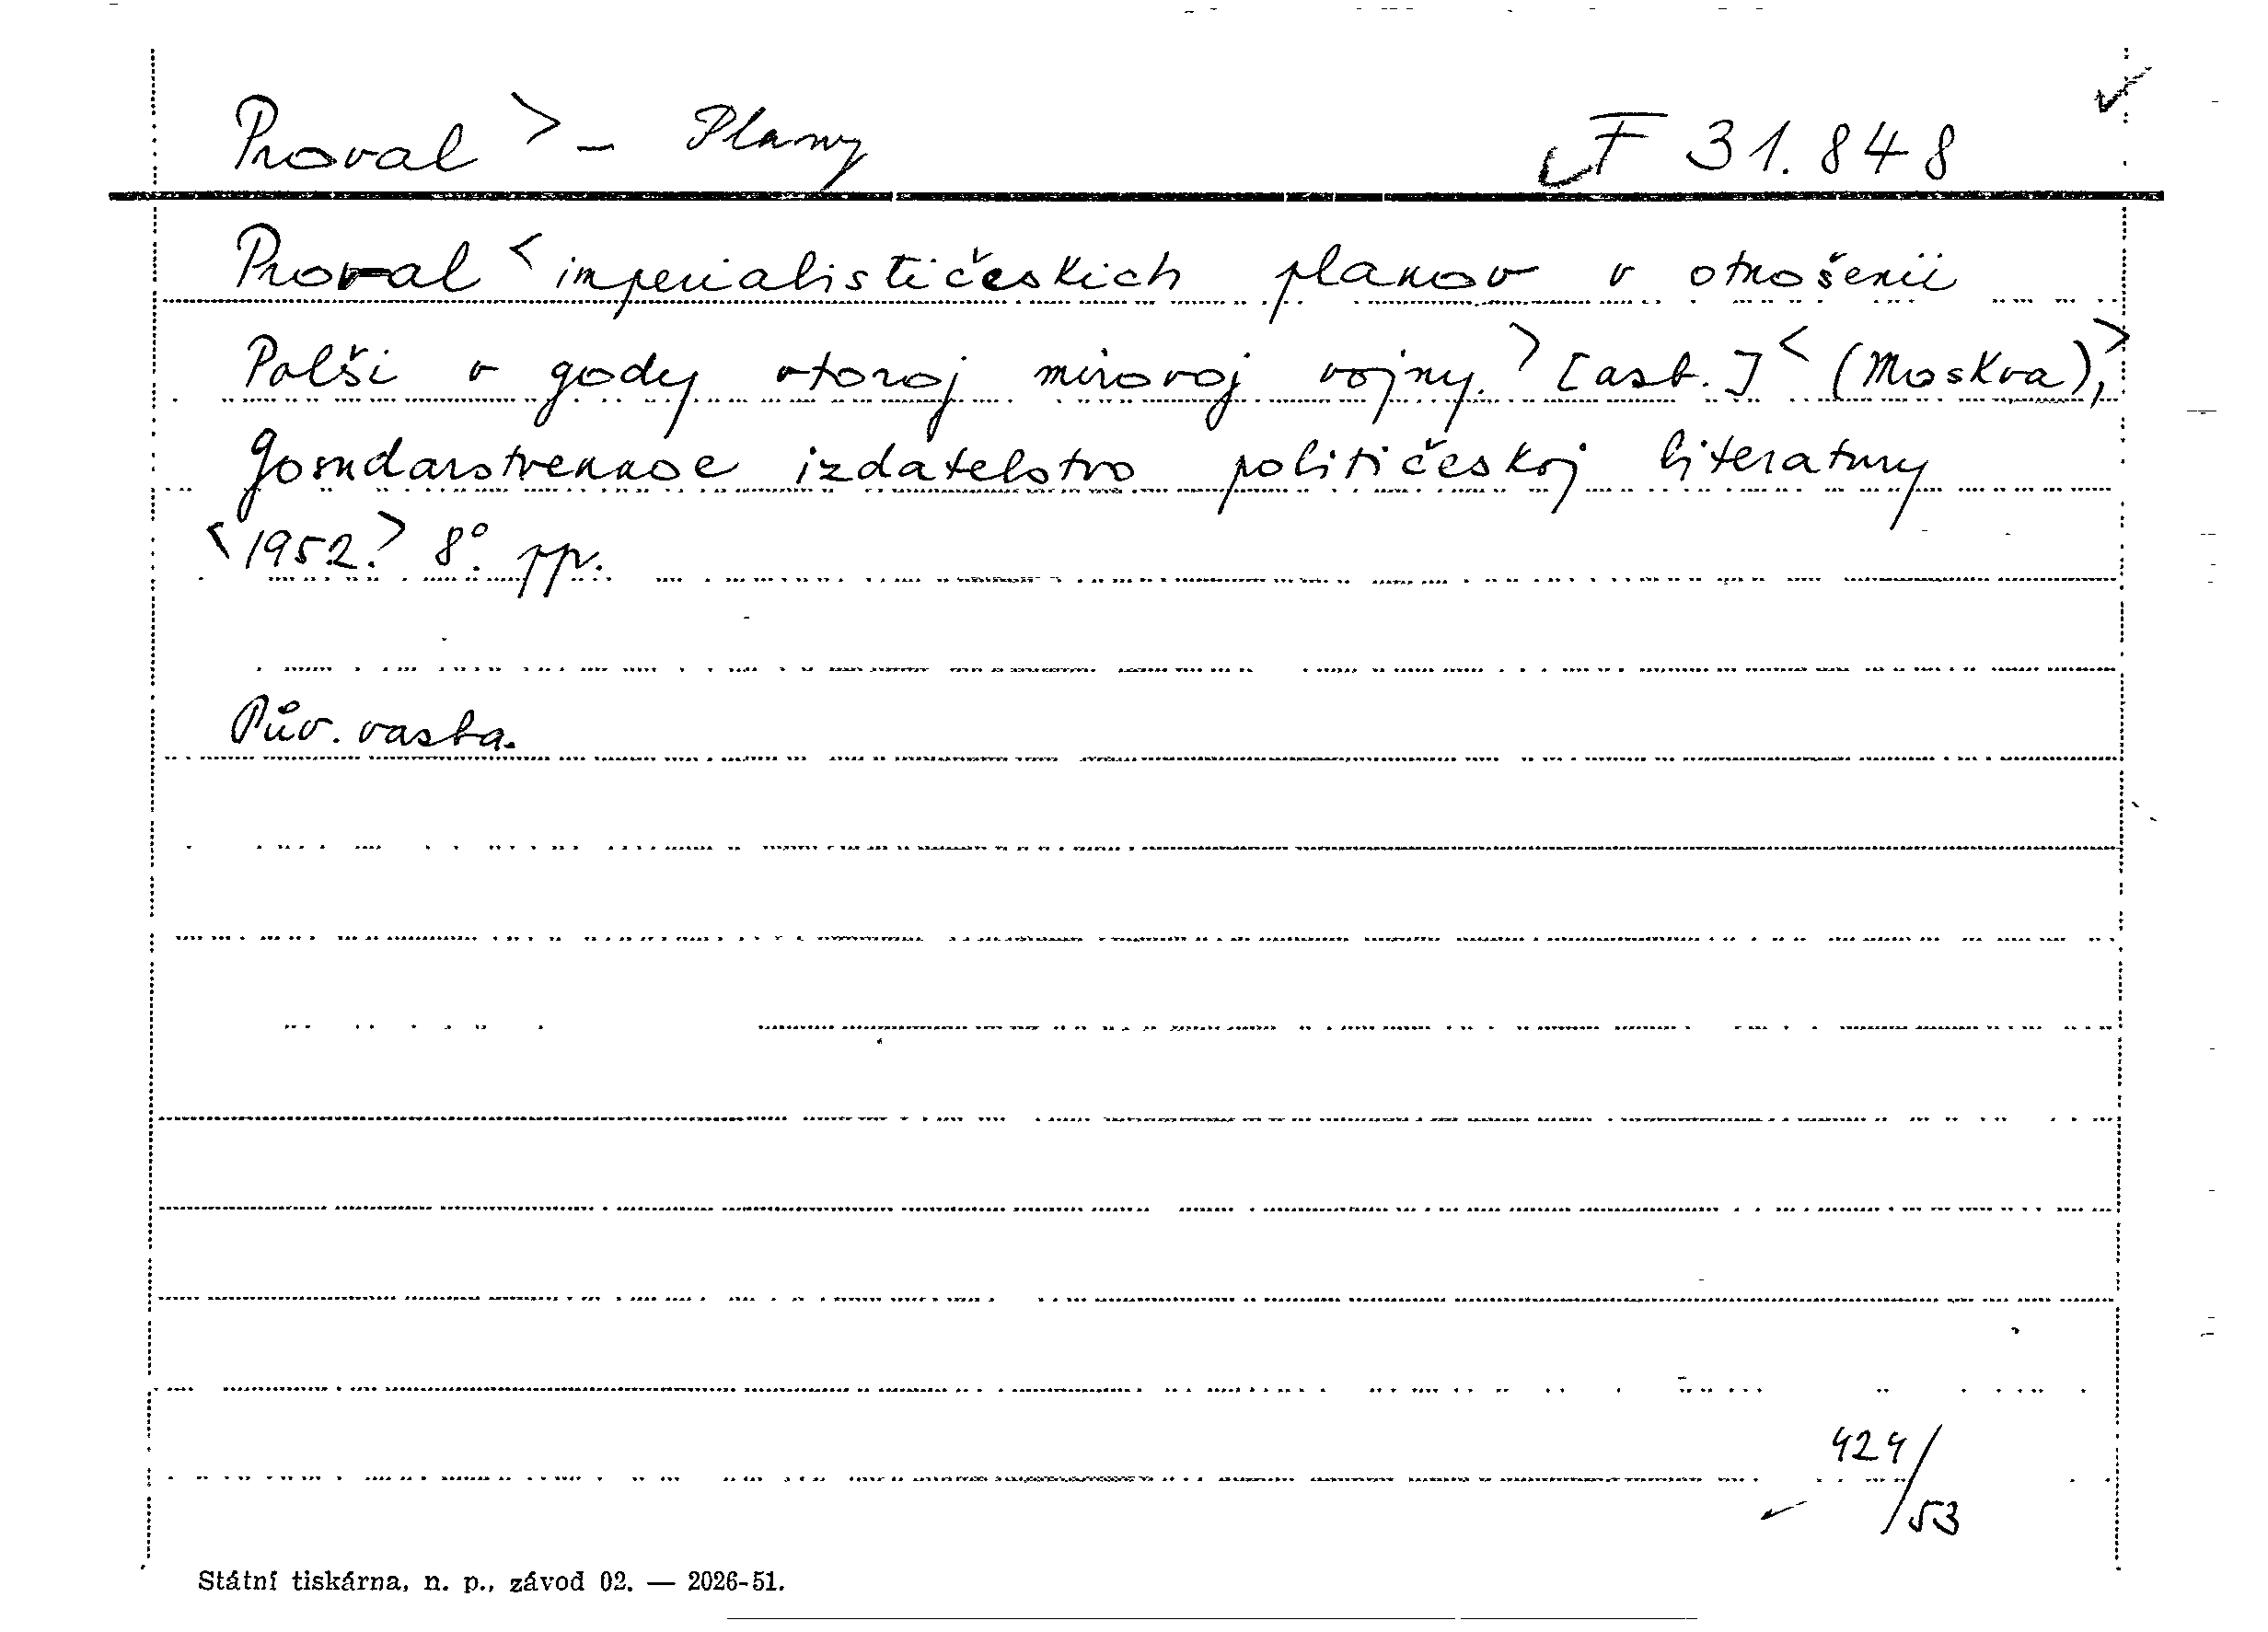 Proval > - Plany F 31.848
Proval < imperialističeskich planov v otnošenii
Polši v gody vtoroj mirovoj vojny. > [azb.] < (Moskva), >
Gosudarstvennoe izdatelstvo političeskoj literatury
< 1952. > 8°. pp.
Pův. vazba.
424/53
Státní tiskárna, n. p., závod 02. — 2026-51.